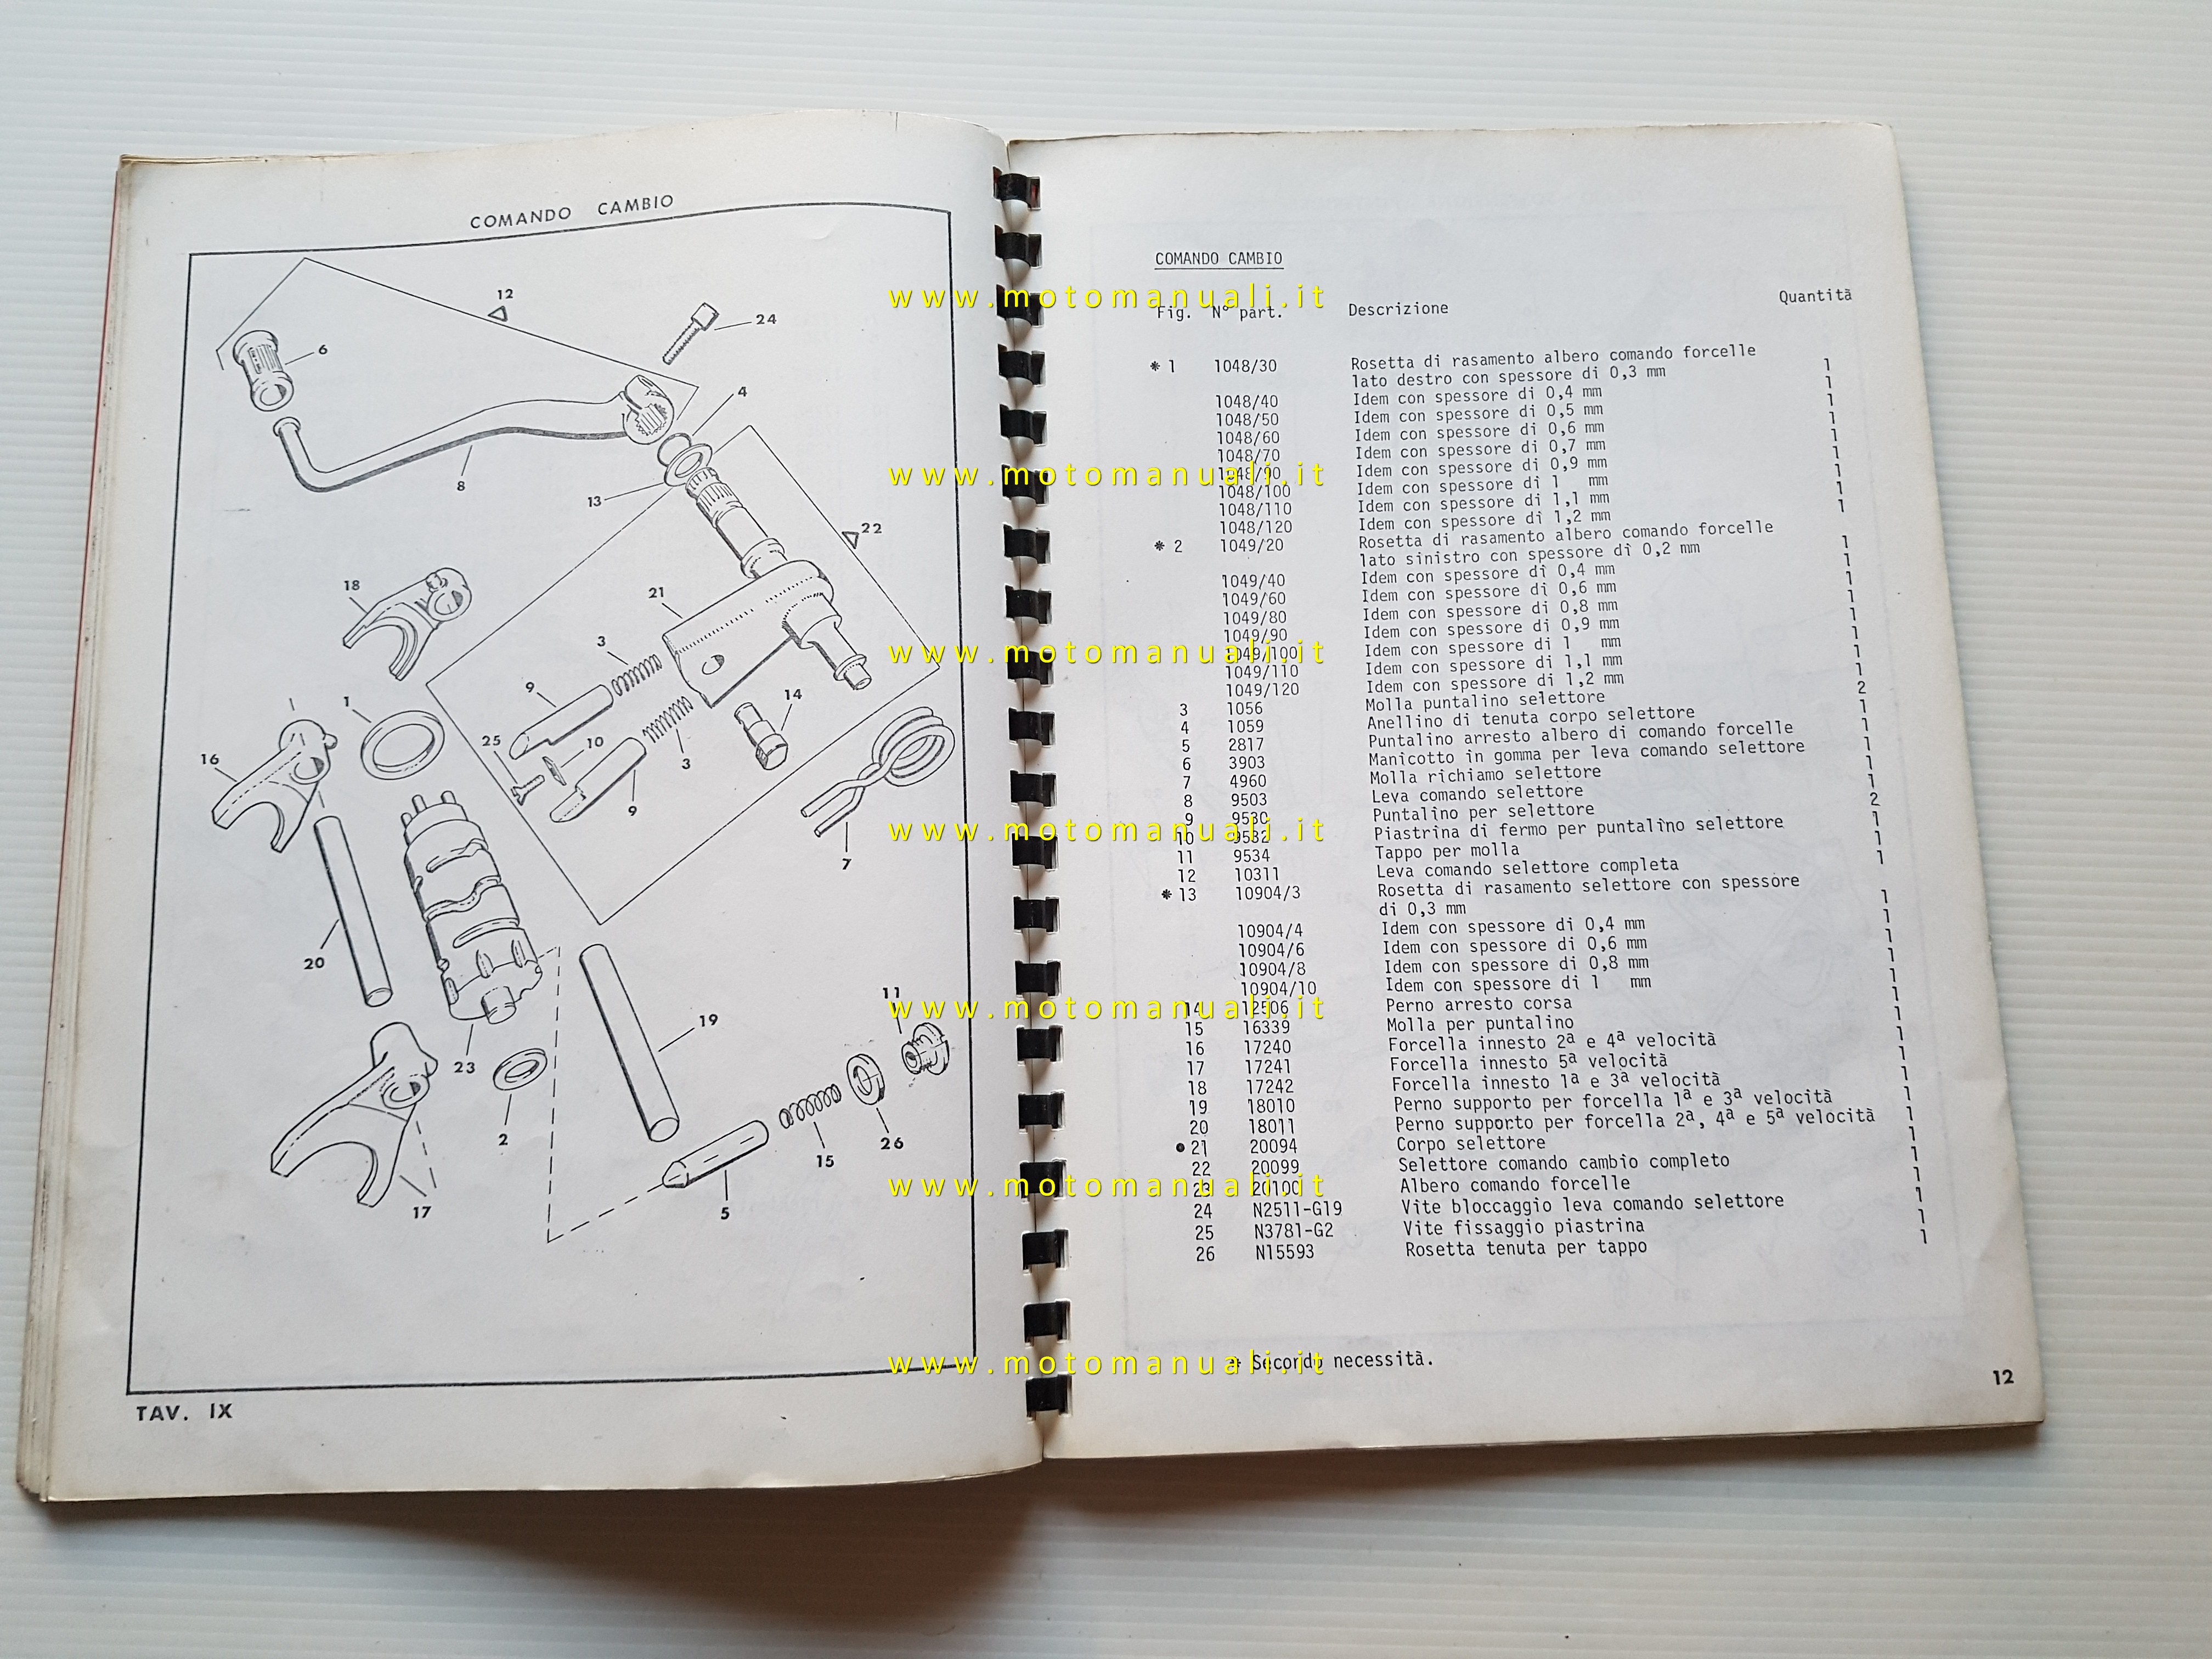 COMANDO CAMBIO
12
24
6
4
8
13
22
18
21
3
9
14
1
25
10
16
3
9
7
20
11
19
23
2
26
15
5
17
TAV. IX
COMANDO CAMBIO
www.motomanuali.it
Fig. N° part. Descrizione Quantità
* 1 1048/30 Rosetta di rasamento albero comando forcelle
lato destro con spessore di 0,3 mm 1
1048/40 Idem con spessore di 0,4 mm 1
1048/50 Idem con spessore di 0,5 mm 1
1048/60 Idem con spessore di 0,6 mm 1
1048/70 Idem con spessore di 0,7 mm 1
1048/90 Idem con spessore di 0,9 mm 1
www.motomanuali.it
1048/100 Idem con spessore di 1 mm 1
1048/110 Idem con spessore di 1,1 mm 1
1048/120 Idem con spessore di 1,2 mm 1
* 2 1049/20 Rosetta di rasamento albero comando forcelle
lato sinistro con spessore di 0,2 mm 1
1049/40 Idem con spessore di 0,4 mm 1
1049/60 Idem con spessore di 0,6 mm 1
1049/80 Idem con spessore di 0,8 mm 1
1049/90 Idem con spessore di 0,9 mm 1
1049/100 Idem con spessore di 1 mm 1
www.motomanuali.it
1049/110 Idem con spessore di 1,1 mm 1
1049/120 Idem con spessore di 1,2 mm 1
3 1056 Molla puntalino selettore 2
4 1059 Anellino di tenuta corpo selettore 1
5 2817 Puntalino arresto albero di comando forcelle 1
6 3903 Manicotto in gomma per leva comando selettore 1
7 4960 Molla richiamo selettore 1
8 9503 Leva comando selettore 1
9 9530 Puntalino per selettore 2
www.motomanuali.it
10 9532 Piastrina di fermo per puntalino selettore 1
11 9534 Tappo per molla 1
12 10311 Leva comando selettore completa 1
* 13 10904/3 Rosetta di rasamento selettore con spessore
di 0,3 mm 1
10904/4 Idem con spessore di 0,4 mm 1
10904/6 Idem con spessore di 0,6 mm 1
10904/8 Idem con spessore di 0,8 mm 1
10904/10 Idem con spessore di 1 mm 1
14 12506 Perno arresto corsa 1
www.motomanuali.it
15 16339 Molla per puntalino 1
16 17240 Forcella innesto 2ª e 4ª velocità 1
17 17241 Forcella innesto 5ª velocità 1
18 17242 Forcella innesto 1ª e 3ª velocità 1
19 18010 Perno supporto per forcella 1ª e 3ª velocità 1
20 18011 Perno supporto per forcella 2ª, 4ª e 5ª velocità 1
• 21 20094 Corpo selettore 1
22 20099 Selettore comando cambio completo 1
23 20100 Albero comando forcelle 1
www.motomanuali.it
24 N2511-G19 Vite bloccaggio leva comando selettore 1
25 N3781-G2 Vite fissaggio piastrina 1
26 N15593 Rosetta tenuta per tappo 1
* Secondo necessità.
www.motomanuali.it
12